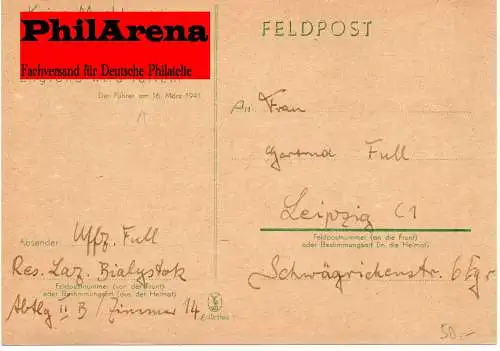 PhilArena
Fachversand für Deutsche Philatelie
Der Führer am 16. März 1941
Absender:
Uffz. Full
Res. Laz. Bialystok
Feldpostnummer (von der Front)
oder Bestimmungsort (aus der Heimat)
Abtlg II B / Zimmer 14
FELDPOST
An Frau
Gertrud Full
Leipzig C1
Feldpostnummer (an die Front)
oder Bestimmungsort (in die Heimat)
Schwägrichenstr. 6
50.-